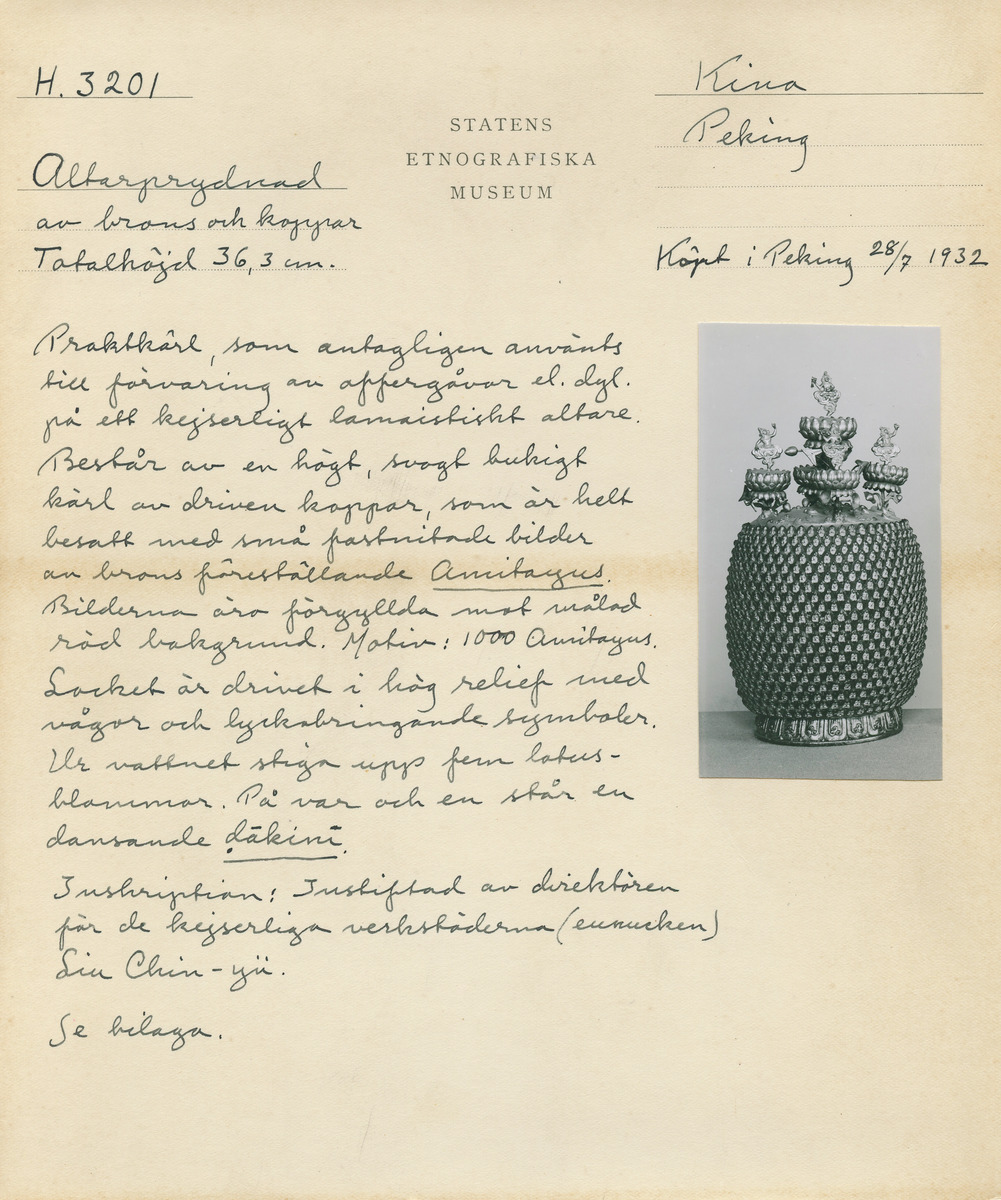 H. 3201
Altarprydnad
av brons och koppar
Totalhöjd 36,3 cm.
STATENS
ETNOGRAFISKA
MUSEUM
Kina
Peking
Köpt i Peking 28/7 1932
Praktkärl, som antagligen använts
till förvaring av offergåvor el. dyl.
på ett kejserligt lamaistiskt altare.
Består av en högt, svagt bukigt
kärl av driven koppar, som är helt
besatt med små fastnitade bilder
av brons föreställande Amitayus.
Bilderna äro förgyllda mot målad
röd bakgrund. Motiv: 1000 Amitayus.
Locket är drivet i hög relief med
vågor och lyckobringande symboler.
Ur vattnet stiga upp fem lotus-
blommor. På var och en står en
dansande ḍākinī.
Inskription: Instiftad av direktören
för de kejserliga verkstäderna (eunucken)
Liu Chin-yü.
Se bilaga.